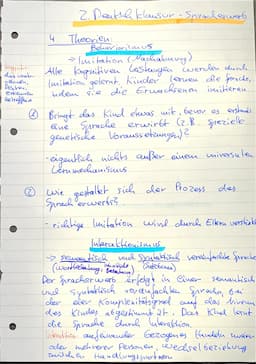 2. Deutsch klausur - Spracherwerb
4 Theorien:
Behaviorismus
→ Imitation (Nachahmung)
Alle kognitiven Leistungen werden durch
Imitation gelernt. Kinder lernen die Sprache,
indem sie die Erwachsenen imitieren
① Bringt das Kind etwas mit, bevor es
eine Sprache erwirbt (z.B. spezielle
genetische Voraussetzungen)?
- eigentlich nichts außer einem universellen
Lernmechanismus
② Wie gestaltet sich der Prozess des
Spracherwerbs?
- richtige Imitation wird durch Eltern verstärkt
Interaktionismus
→ semantisch und syntaktisch vereinfachte Sprache
(Wortbedeutung,
Der Spracherwerb erfolgt in einer semantisch
und syntaktisch vereinfachten Sprache, bei
der der Komplexitätsgrad auf das Niveau
des Kindes abgestimmt ist. Das Kind lernt
die Sprache durch Interaktion.
aufeinander bezogenes Handeln zweier
oder mehrerer Personen, Wechselbeziehung
zwischen Handlungspartnern